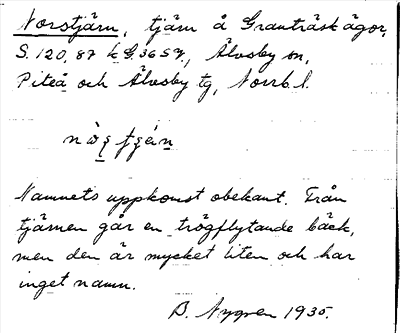 Norstjärn, tjärn å Granträsk ägor,
S. 120, 87 k G. 36 S 7, Älvsby sn,
Piteå och Älvsby tg, Norrb. l.
Namnets uppkomst obekant. Från
tjärnen går en trögflytande bäck,
men den är mycket liten och har
inget namn.
B. Nygren 1935.